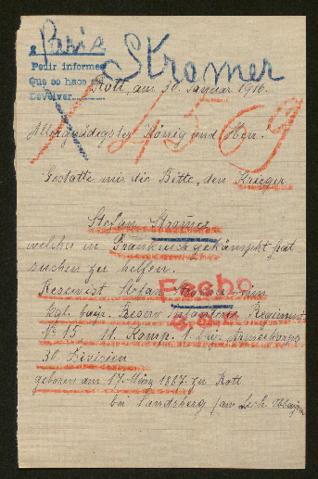 a Paris
Pedir informes
Que se hace
Devolver
Stramer
Rott, am 30. Januar 1916.
14569
Allergnädigster König und Herr.
Gestatte mir die Bitte, den Krieger
Stefan Stramer
welcher in Frankreich gekämpft hat
suchen zu helfen.
Reservist Stefan
Fecho
Kgl. bayr. Reserv Infanterie Regiment
No 15 11. Komp. 1. Armeekorps
30. Division
geboren am 17. März 1887 zu Rott
bei Landsberg am Lech